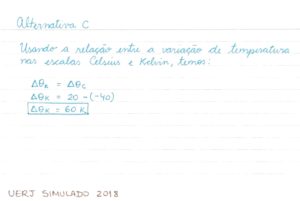 Alternativa C
Usando a relação entre a variação de temperatura
nas escalas Celsius e Kelvin, temos:
Δθ_K = Δθ_C
Δθ_K = 20 - (-40)
Δθ_K = 60 K
UERJ SIMULADO 2018